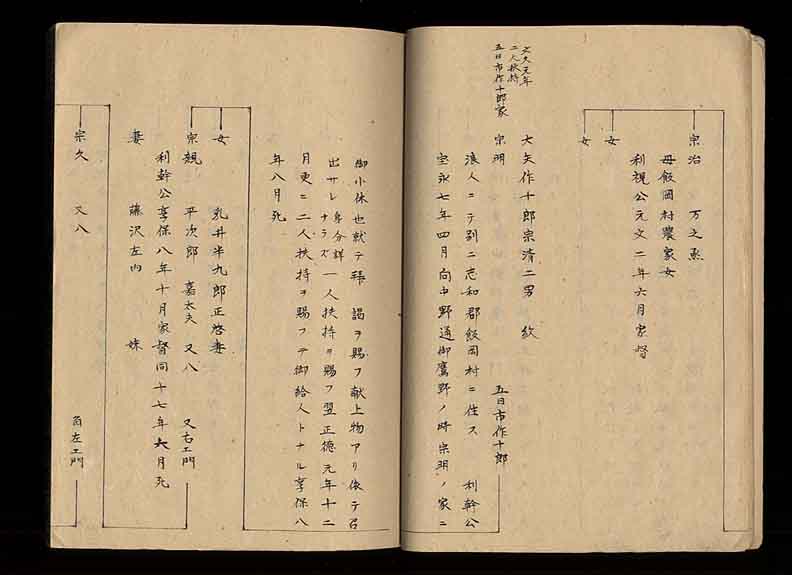 宗治 万之丞
母飯岡村農家女
利視公元文二年六月家督
女
女
文久元年
二人扶持
五日市作十郎家
大矢作十郎宗清二男 紋
宗明 五日市作十郎
浪人ニテ別ニ志和郡飯岡村ニ住ス 利幹公
宝永七年四月向中野通御鷹野ノ時宗明ノ家ニ
御小休也就テ拝謁ヲ賜フ献上物アリ依テ召
出サレ身分詳ナラズ一人扶持ヲ賜フ翌正徳元年十二
月更ニ二人扶持ヲ賜フテ御給人トナル享保八
年八月死
女 乳井半九郎正啓妻
宗親 平次郎 嘉太夫 又八 又右エ門
利幹公享保八年十月家督同十七年六月死
妻 藤沢左内 妹
宗久 又八 角左エ門